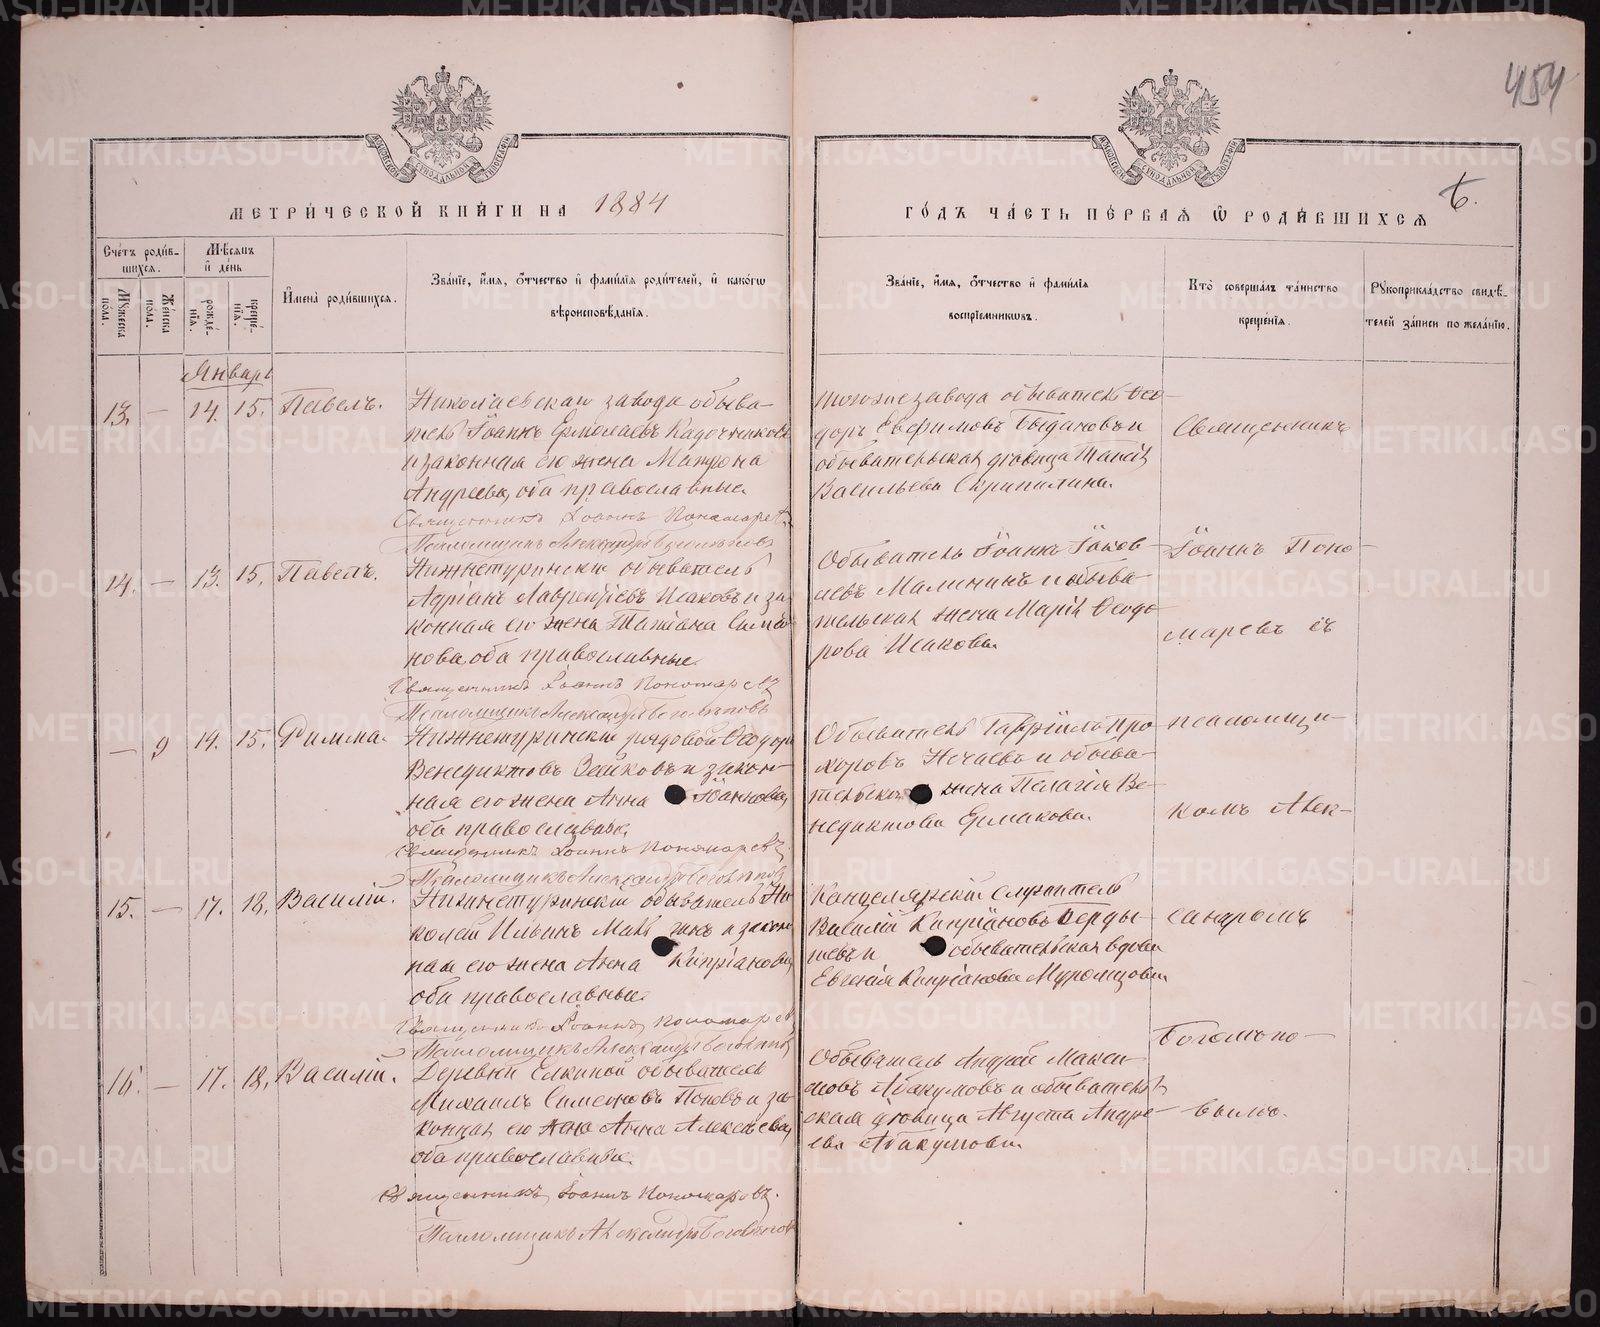 454
МЕТРИ́ЧЕСКОЙ КНИ́ГИ НА 1884
ГО́ДЪ ЧА́СТЬ ПЕ́РВАЯ Ѿ РОДИ́ВШИХСЯ
6.
Сче́тъ роди́в-
шихся.
Мѣ́сяцъ
и҆ де́нь
Му́жеска
по́ла.
Же́нска
по́ла.
рожде́-
нїя.
креще́-
нїя.
И҆мена̀ роди́вшихся.
Зва́нїе, и҆́мя, ѻ҆́тчество и҆ фами́лїя роди́телей, и҆ како́гѡ
вѣроисповѣ́данїя.
Зва́нїе, и҆́мя, ѻ҆́тчество и҆ фами́лїя
воспрїе́мникѡвъ.
Кто̀ соверша́лъ та́инство
креще́нїя.
Рꙋкоприкла́дство свидѣ́-
телей за́писи по жела́нїю.
Январь
13. — 14. 15. Павелъ.
Николаевскаго завода обыва-
тель Іоаннъ Ермолаевъ Кадочниковъ
и законная его жена Матрона
Андреева, оба православные.
Священникъ Іоаннъ Пономаревъ
Псаломщикъ Александръ Боголѣповъ
того же завода обыватель Ѳео-
доръ Евфимовъ Богдановъ и
обывательская дѣвица
Васильева Скрипилина.
Священникъ
14. — 13. 15. Павелъ.
Нижнетуринскій обыватель
Адріанъ Лаврентіевъ Исаковъ и за-
конная его жена Татіана Симео-
нова, оба православные.
Священникъ Іоаннъ Пономаревъ
Псаломщикъ Александръ Боголѣповъ
Обыватель Іоаннъ Іаков-
левъ Малининъ и обыва-
тельская жена Марія Ѳеодо-
рова Исакова.
Іоаннъ Поно-
маревъ съ
— 9 14. 15. Римма.
Нижнетуринскій рядовой Ѳеодоръ
Венедиктовъ Зыковъ и закон-
ная его жена Анна Іоаннова,
оба православные.
Священникъ Іоаннъ Пономаревъ
Псаломщикъ Александръ Боголѣповъ
Обыватель Гавріилъ Про-
хоровъ Нечаевъ и обыва-
тельская жена Пелагія Ве-
недиктова Ермакова.
псаломщи-
комъ Алек-
15. — 17. 18. Василій.
Нижнетуринскій обыватель Ни-
колай Ильинъ и закон-
ная его жена Анна Кипріанова,
оба православные.
Священникъ Іоаннъ Пономаревъ
Псаломщикъ Александръ Боголѣповъ
Канцелярскій служитель
Василій Кипріановъ Берды-
шевъ и обывательская вдова
Евгенія Кипріанова Муромцова.
сандромъ
16. — 17. 18. Василій.
Деревни Елкиной обыватель
Михаилъ Симеоновъ Поповъ и за-
конная его жена Анна Алексѣева,
оба православные.
Священникъ Іоаннъ Пономаревъ.
Псаломщикъ Александръ Боголѣповъ
Обыватель Андрей Макси-
мовъ Абакумовъ и обыватель-
ская дѣвица Августа Андре-
ева Абакумова.
Боголѣпо-
вымъ.
METRIKI.GASO-URAL.RU